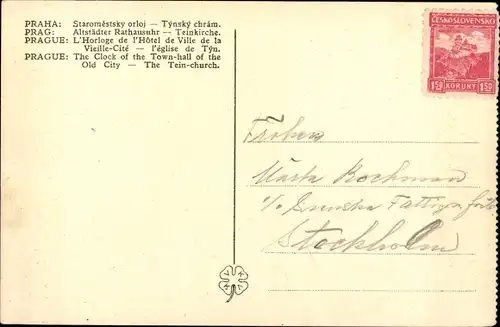 PRAHA: Staroměstsky orloj — Týnský chrám.
PRAG: Altstädter Rathausuhr — Teinkirche.
PRAGUE: L'Horloge de l'Hôtel de Ville de la
Vieille-Cité — l'église de Týn.
PRAGUE: The Clock of the Town-hall of the
Old City — The Tein-church.
ČESKOSLOVENSKO
1·50 KORUNY 1·50
Fröken
Märta Kochman
c/o Svenska
Stockholm